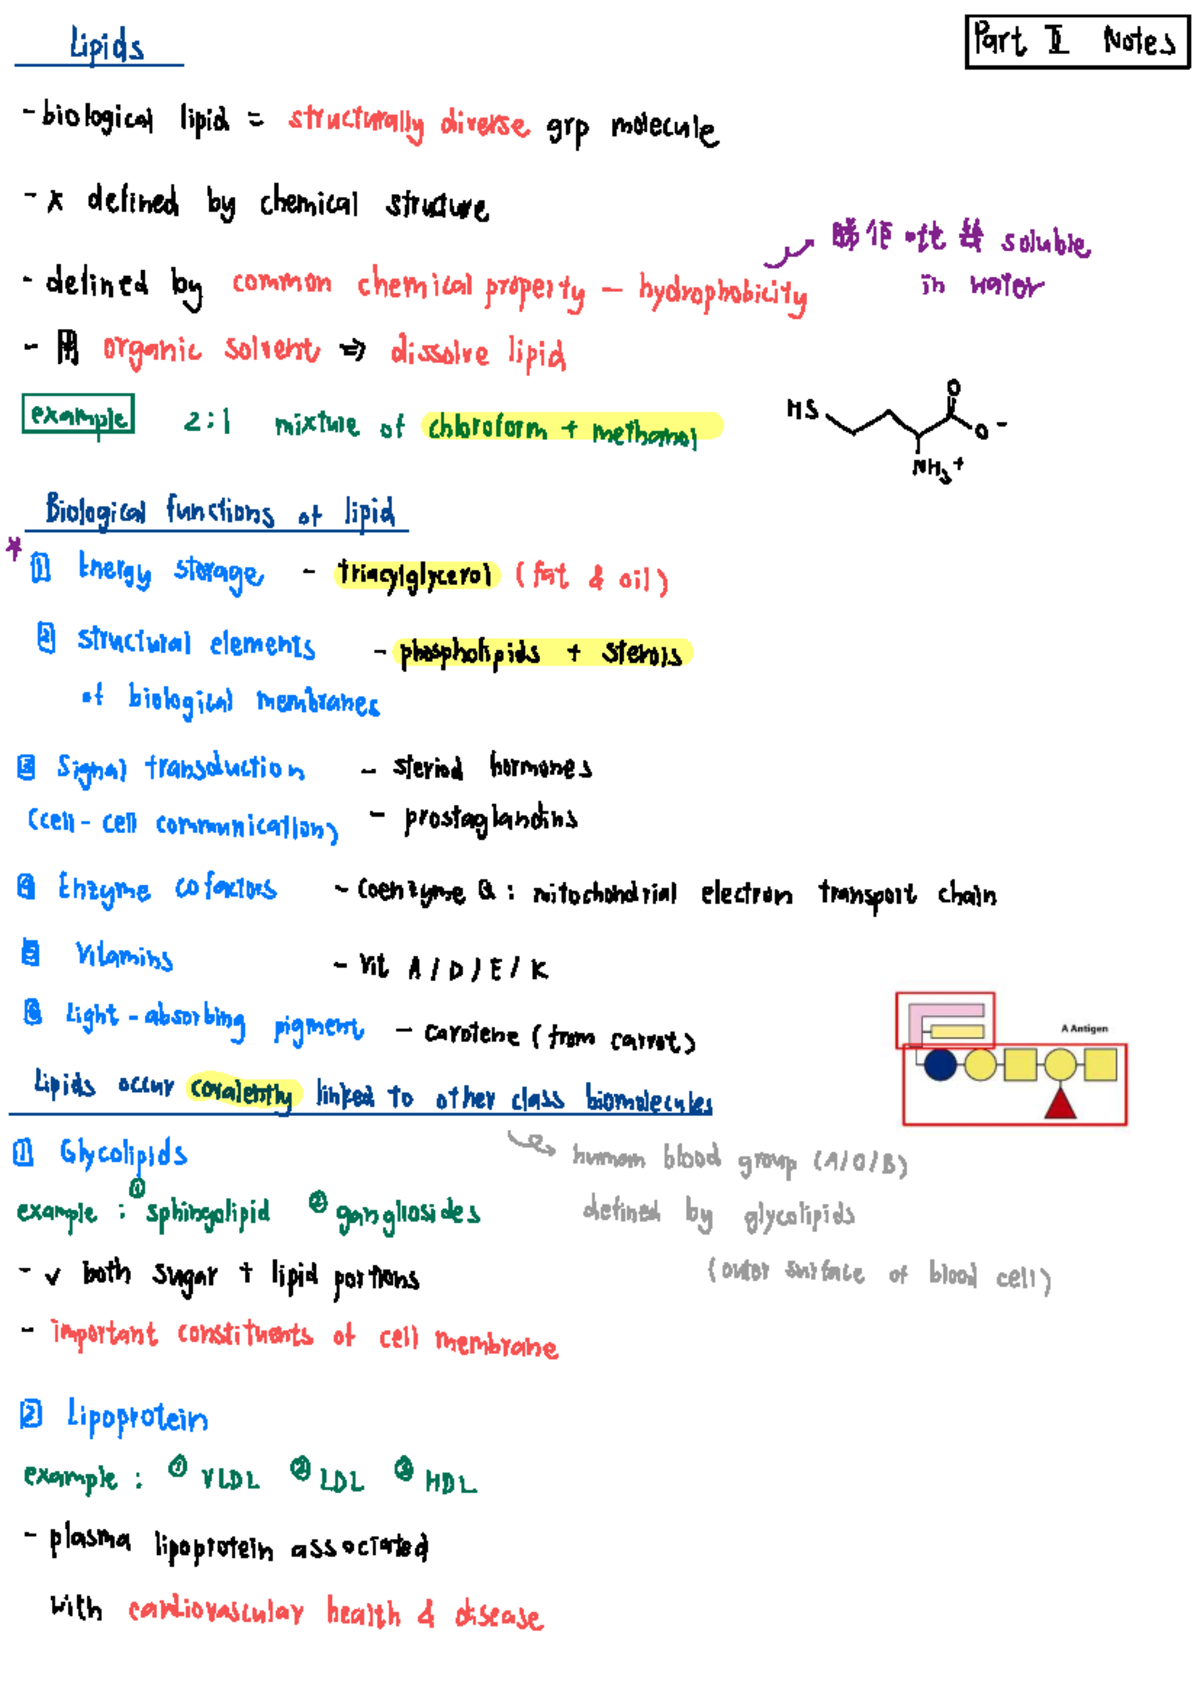 Lipids
Part II Notes
- biological lipid = structurally diverse grp molecule
- x defined by chemical structure
- defined by common chemical property - hydrophobicity
soluble
in water
- 用 organic solvent => dissolve lipid
example 2:1 mixture of chloroform + methanol
HS O O- NH3+
Biological functions of lipid
* 1 Energy storage - triacylglycerol (fat & oil)
2 structural elements - phospholipids + sterols
of biological membranes
3 Signal transduction - steriod hormones
(cell-cell communication) - prostaglandins
4 Enzyme cofactors - Coenzyme Q : mitochondrial electron transport chain
5 Vitamins - Vit A / D / E / K
6 Light-absorbing pigment - carotene (from carrot)
A Antigen
Lipids occur covalently linked to other class biomolecules
1 Glycolipids
human blood group (A/O/B)
example : ① sphingolipid ② gangliosides
defined by glycolipids
- ✓ both sugar + lipid portions
(outer surface of blood cell)
- important constituents of cell membrane
2 Lipoprotein
example : ① VLDL ② LDL ③ HDL
- plasma lipoprotein associated
with cardiovascular health & disease